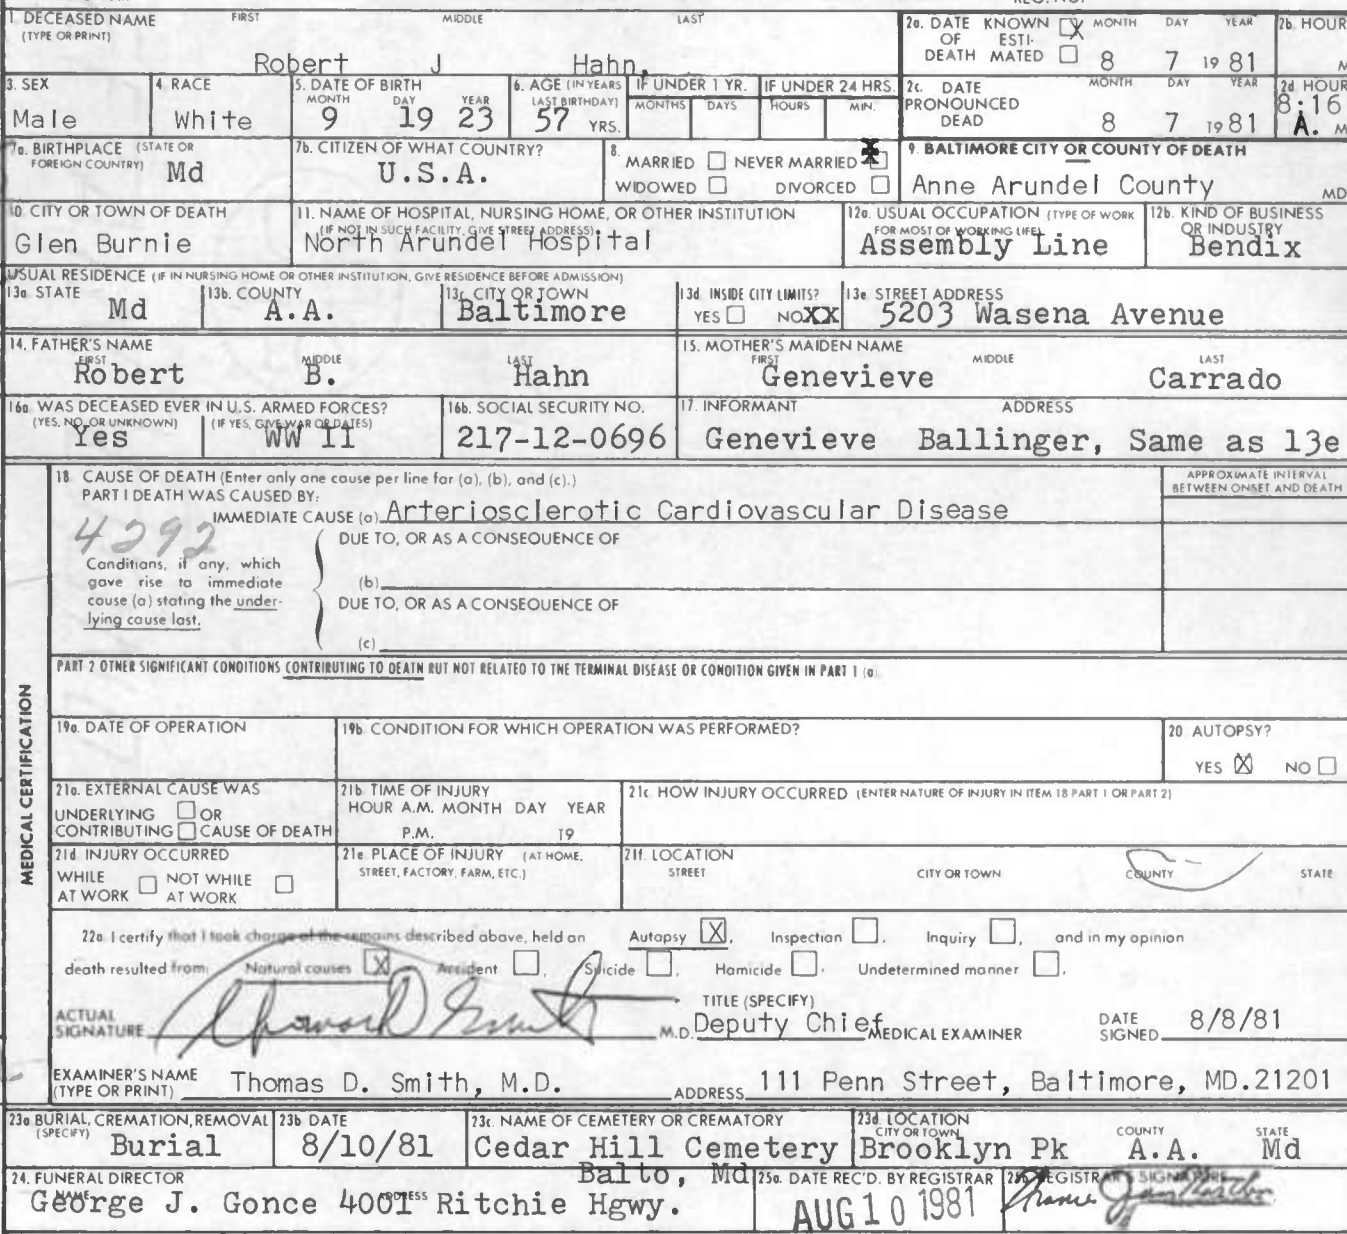 1. DECEASED NAME FIRST MIDDLE LAST
(TYPE OR PRINT)
Robert J Hahn,
2a. DATE KNOWN X MONTH DAY YEAR
OF ESTI-
DEATH MATED 8 7 19 81
2b. HOUR
M
3. SEX
Male
4. RACE
White
5. DATE OF BIRTH
MONTH DAY YEAR
9 19 23
6. AGE (IN YEARS
LAST BIRTHDAY)
57 YRS.
IF UNDER 1 YR.
MONTHS DAYS
IF UNDER 24 HRS.
HOURS MIN.
2c. DATE MONTH DAY YEAR
PRONOUNCED
DEAD 8 7 1981
2d HOUR
8:16
A. M
7a. BIRTHPLACE (STATE OR
FOREIGN COUNTRY) Md
7b. CITIZEN OF WHAT COUNTRY?
U.S.A.
8.
MARRIED NEVER MARRIED X
WIDOWED DIVORCED
9. BALTIMORE CITY OR COUNTY OF DEATH
Anne Arundel County MD
10. CITY OR TOWN OF DEATH
Glen Burnie
11. NAME OF HOSPITAL, NURSING HOME, OR OTHER INSTITUTION
(IF NOT IN SUCH FACILITY, GIVE STREET ADDRESS)
North Arundel Hospital
12a. USUAL OCCUPATION (TYPE OF WORK
FOR MOST OF WORKING LIFE)
Assembly Line
12b. KIND OF BUSINESS
OR INDUSTRY
Bendix
USUAL RESIDENCE (IF IN NURSING HOME OR OTHER INSTITUTION, GIVE RESIDENCE BEFORE ADMISSION)
13a STATE
Md
13b. COUNTY
A.A.
13c. CITY OR TOWN
Baltimore
13d. INSIDE CITY LIMITS?
YES NO XX
13e STREET ADDRESS
5203 Wasena Avenue
14. FATHER'S NAME
FIRST MIDDLE LAST
Robert B. Hahn
15. MOTHER'S MAIDEN NAME
FIRST MIDDLE LAST
Genevieve Carrado
16a WAS DECEASED EVER IN U.S. ARMED FORCES?
(YES, NO, OR UNKNOWN) (IF YES, GIVE WAR OR DATES)
Yes WW II
16b. SOCIAL SECURITY NO.
217-12-0696
17. INFORMANT ADDRESS
Genevieve Ballinger, Same as 13e
MEDICAL CERTIFICATION
18 CAUSE OF DEATH (Enter only one cause per line for (a), (b), and (c).)
PART I DEATH WAS CAUSED BY:
IMMEDIATE CAUSE (a) Arteriosclerotic Cardiovascular Disease
APPROXIMATE INTERVAL
BETWEEN ONSET AND DEATH
4292
DUE TO, OR AS A CONSEQUENCE OF
Conditions, if any, which
gave rise to immediate
cause (a) stating the under-
lying cause last.
(b)
DUE TO, OR AS A CONSEQUENCE OF
(c)
PART 2 OTHER SIGNIFICANT CONDITIONS CONTRIBUTING TO DEATH BUT NOT RELATED TO THE TERMINAL DISEASE OR CONDITION GIVEN IN PART 1 (a)
19a. DATE OF OPERATION
19b. CONDITION FOR WHICH OPERATION WAS PERFORMED?
20 AUTOPSY?
YES X NO
21a. EXTERNAL CAUSE WAS
UNDERLYING OR
CONTRIBUTING CAUSE OF DEATH
21b TIME OF INJURY
HOUR A.M. MONTH DAY YEAR
P.M. 19
21c. HOW INJURY OCCURRED (ENTER NATURE OF INJURY IN ITEM 18 PART 1 OR PART 2)
21d INJURY OCCURRED
WHILE NOT WHILE
AT WORK AT WORK
21e PLACE OF INJURY (AT HOME,
STREET, FACTORY, FARM, ETC.)
21f. LOCATION
STREET CITY OR TOWN COUNTY STATE
22a I certify that I took charge of the remains described above, held an Autopsy X, Inspection , Inquiry , and in my opinion
death resulted from: Natural causes X Accident , Suicide , Homicide , Undetermined manner .
ACTUAL
SIGNATURE M.D.
TITLE (SPECIFY)
Deputy Chief MEDICAL EXAMINER
DATE
SIGNED 8/8/81
EXAMINER'S NAME
(TYPE OR PRINT) Thomas D. Smith, M.D. ADDRESS 111 Penn Street, Baltimore, MD.21201
23a BURIAL, CREMATION, REMOVAL
(SPECIFY) Burial
23b DATE
8/10/81
23c. NAME OF CEMETERY OR CREMATORY
Cedar Hill Cemetery
23d. LOCATION
CITY OR TOWN COUNTY STATE
Brooklyn Pk A.A. Md
24. FUNERAL DIRECTOR
NAME ADDRESS
Balto, Md
George J. Gonce 4001 Ritchie Hgwy.
25a. DATE REC'D. BY REGISTRAR
AUG 10 1981
25b. REGISTRAR'S SIGNATURE